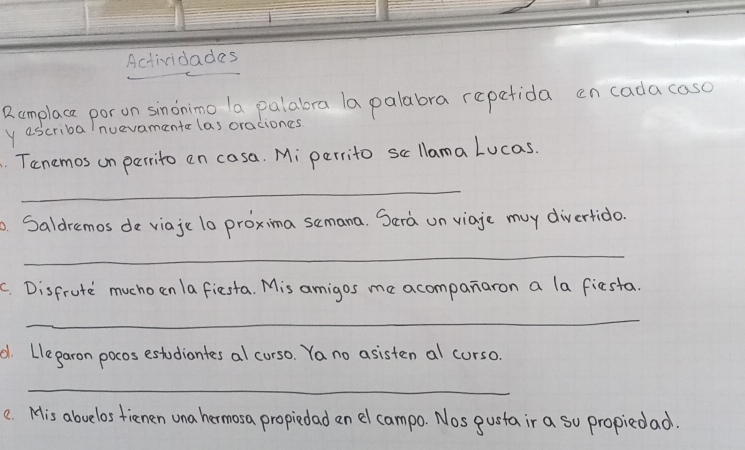 Actividades
Remplace por un sinónimo la palabra la palabra repetida en cada caso
y escriba nuevamente las oraciones
. Tenemos un perrito en casa. Mi perrito se llama Lucas.
b. Saldremos de viaje la próxima semana. Será un viaje muy divertido.
c. Disfruté mucho en la fiesta. Mis amigos me acompañaron a la fiesta.
d. Llegaron pocos estudiantes al curso. Ya no asisten al curso.
e. Mis abuelos tienen una hermosa propiedad en el campo. Nos gusta ir a su propiedad.